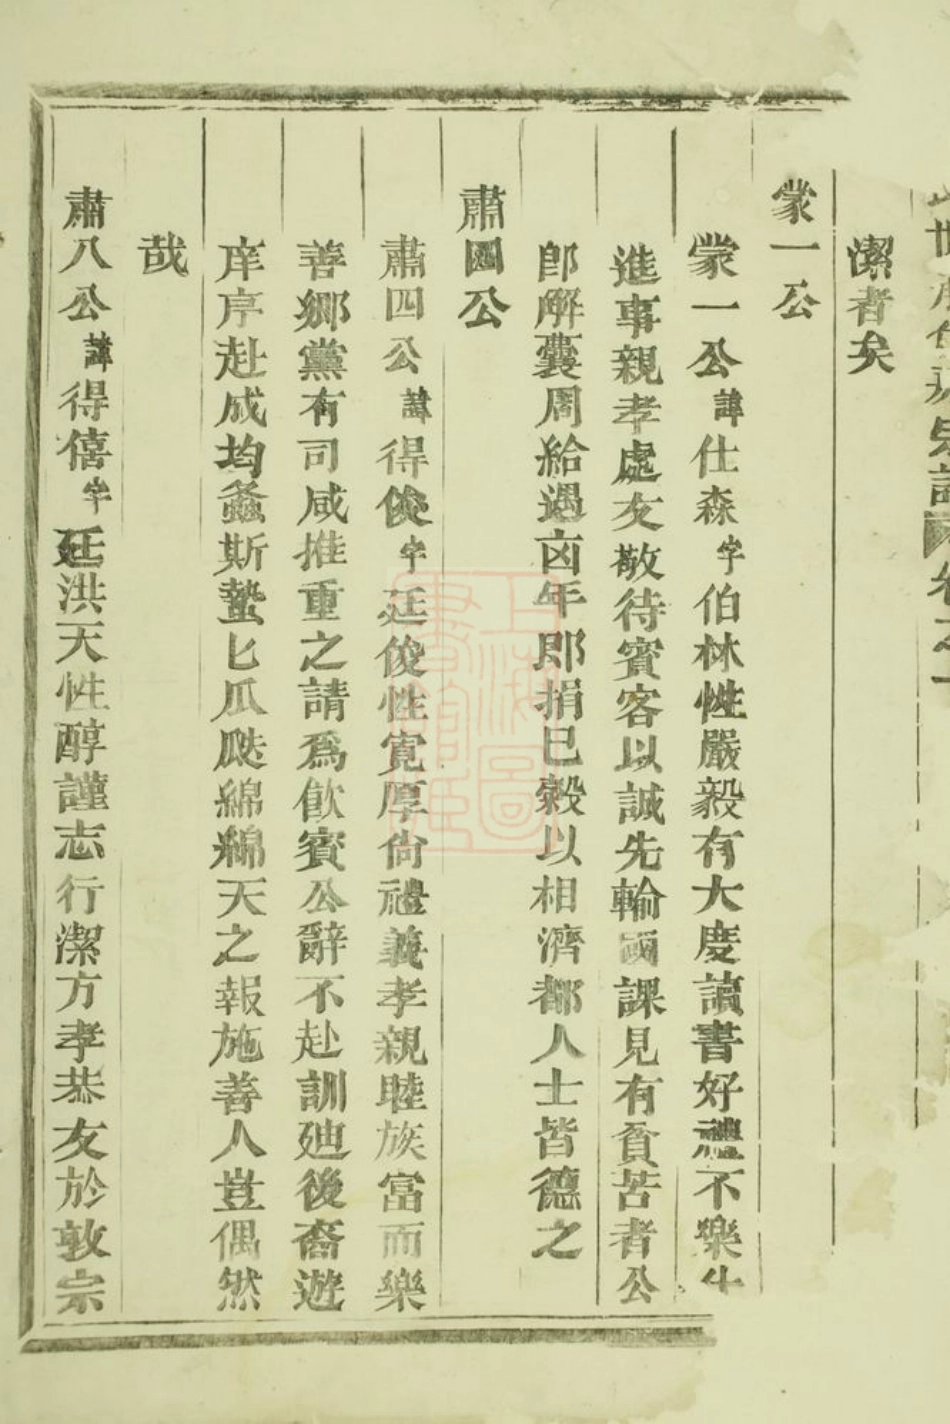 潔者矣
蒙一公
蒙一公諱仕森字伯林性嚴毅有大度讀書好禮不樂
進事親孝處友敬待賓客以誠先輸國課見有貧苦者公
卽解囊周給遇凶年卽捐已穀以相濟都人士皆德之
肅四公
肅四公諱得俊字廷俊性寬厚尙禮義孝親睦族富而樂
善鄉黨有司咸推重之請爲飮賓公辭不赴訓廸後裔遊
庠序赴成均螽斯蟄匕瓜瓞綿綿天之報施善人豈偶然
哉
肅八公諱得僖字廷洪天性醇謹志行潔方孝恭友於敦宗
上海圖書館藏